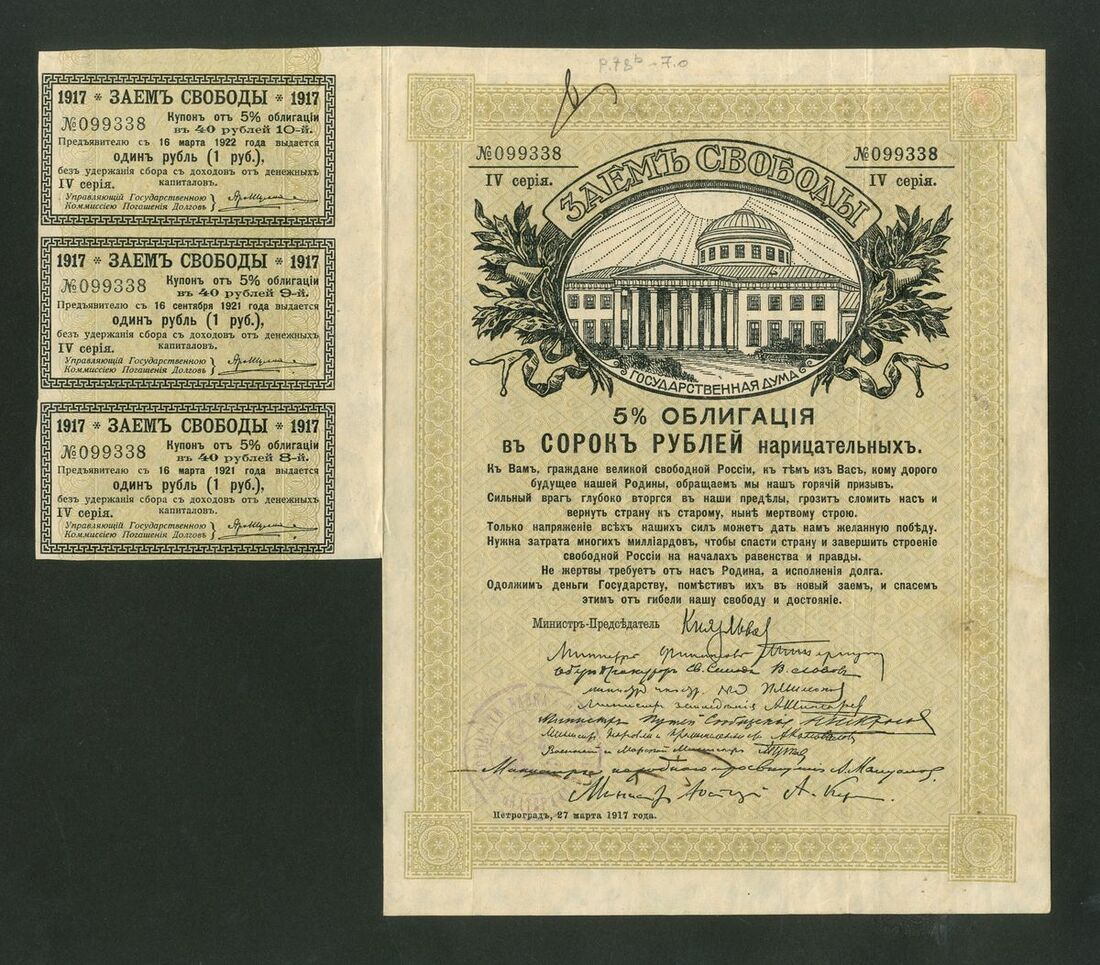 1917 * ЗАЕМЪ СВОБОДЫ * 1917
№099338
Купонъ отъ 5% облигаціи
въ 40 рублей 10-й.
Предъявителю съ 16 марта 1922 года выдается
одинъ рубль (1 руб.),
безъ удержанія сбора съ доходовъ отъ денежныхъ
IV серія. капиталовъ.
Управляющій Государственною
Коммиссіею Погашенія Долговъ
1917 * ЗАЕМЪ СВОБОДЫ * 1917
№099338
Купонъ отъ 5% облигаціи
въ 40 рублей 9-й.
Предъявителю съ 16 сентября 1921 года выдается
одинъ рубль (1 руб.),
безъ удержанія сбора съ доходовъ отъ денежныхъ
IV серія. капиталовъ.
Управляющій Государственною
Коммиссіею Погашенія Долговъ
1917 * ЗАЕМЪ СВОБОДЫ * 1917
№099338
Купонъ отъ 5% облигаціи
въ 40 рублей 8-й.
Предъявителю съ 16 марта 1921 года выдается
одинъ рубль (1 руб.),
безъ удержанія сбора съ доходовъ отъ денежныхъ
IV серія. капиталовъ.
Управляющій Государственною
Коммиссіею Погашенія Долговъ
№099338 №099338
IV серія. IV серія.
ЗАЕМЪ СВОБОДЫ
ГОСУДАРСТВЕННАЯ ДУМА
5% ОБЛИГАЦІЯ
въ СОРОКЪ РУБЛЕЙ нарицательныхъ.
Къ Вамъ, граждане великой свободной Россіи, къ тѣмъ изъ Васъ, кому дорого
будущее нашей Родины, обращаемъ мы нашъ горячій призывъ.
Сильный врагъ глубоко вторгся въ наши предѣлы, грозитъ сломить насъ и
вернуть страну къ старому, нынѣ мертвому строю.
Только напряженіе всѣхъ нашихъ силъ можетъ дать намъ желанную побѣду.
Нужна затрата многихъ милліардовъ, чтобы спасти страну и завершить строеніе
свободной Россіи на началахъ равенства и правды.
Не жертвы требуетъ отъ насъ Родина, а исполненія долга.
Одолжимъ деньги Государству, помѣстивъ ихъ въ новый заемъ, и спасемъ
этимъ отъ гибели нашу свободу и достояніе.
Министръ-Предсѣдатель Кн. Львов
Министръ финансовъ
Оберъ Прокуроръ Св. Синода В. Львовъ
Министръ земледѣлія А Шингарев
Министръ Путей Сообщенія
Министръ торговли и промышленности А Коновалов
Военный и Морской Министръ
Министръ народнаго просвѣщенія А. Мануйлов.
Министр Юстиціи А. Кер
Петроградъ, 27 марта 1917 года.